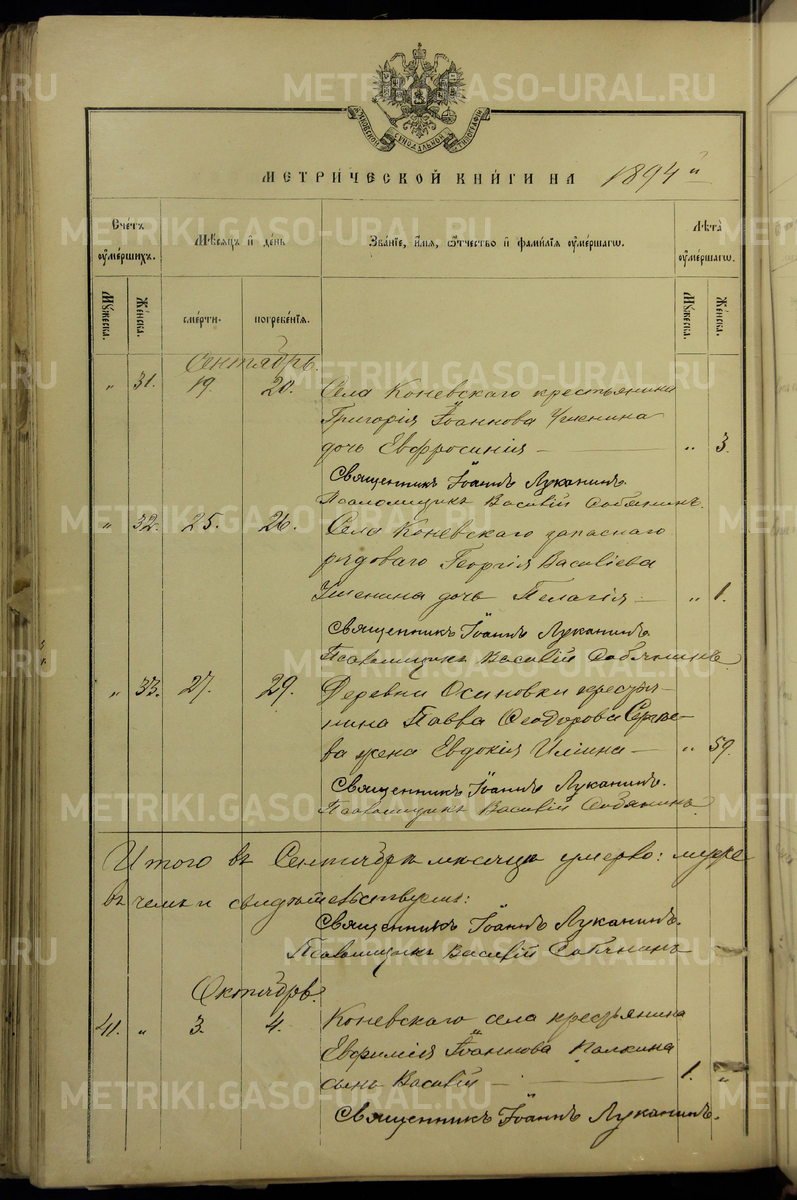 METRIKI.GASO-URAL.RU
МОСКОВСКОЙ СѴНОДАЛЬНОЙ ТИПОГРАФІИ
МЕТРИ́ЧЕСКОЙ КНИ́ГИ НА 1894 й
Сче́тъ оуме́ршихъ.
Мѣ́сяцъ и де́нь
Зва́нїе, и́мя, ѻ́тчество и фами́лїя оуме́ршагѡ.
Лѣ́та оуме́ршагѡ.
Мꙋ́жеска.
Же́нска.
сме́рти.
погребе́нїя.
Мꙋ́жеска.
Же́нска.
Сентябрь.
„ 31. 19. 20. Села Коневскаго крестьянина
Григорія Іоаннова Ушенина
дочь Евфросинія — „ 3.
Священникъ Іоаннъ Луканинъ.
Псаломщикъ Василій Собянинъ.
„ 32. 25. 26. Села Коневскаго запаснаго
рядоваго Георгія Василіева
Ушенина дочь Пелагія — „ 1.
Священникъ Іоаннъ Луканинъ.
Псаломщикъ Василій Собянинъ
„ 33. 27. 29. Деревни Осиновки крестья-
нина Павла Ѳеодорова Сергѣе-
ва жена Евдокія Иліина — „ 59.
Священникъ Іоаннъ Луканинъ.
Псаломщикъ Василій Собянинъ
Итого въ Сентябрѣ мѣсяцѣ умерло: муже
въ чемъ и свидѣтельствуемъ:
Священникъ Іоаннъ Луканинъ.
Псаломщикъ Василій Собянинъ
Октябрь.
41. „ 3. 4. Коневскаго села крестьянина
Евфимія Іоаннова Палкина
сынъ Василій — 1. „
Священникъ Іоаннъ Луканинъ.